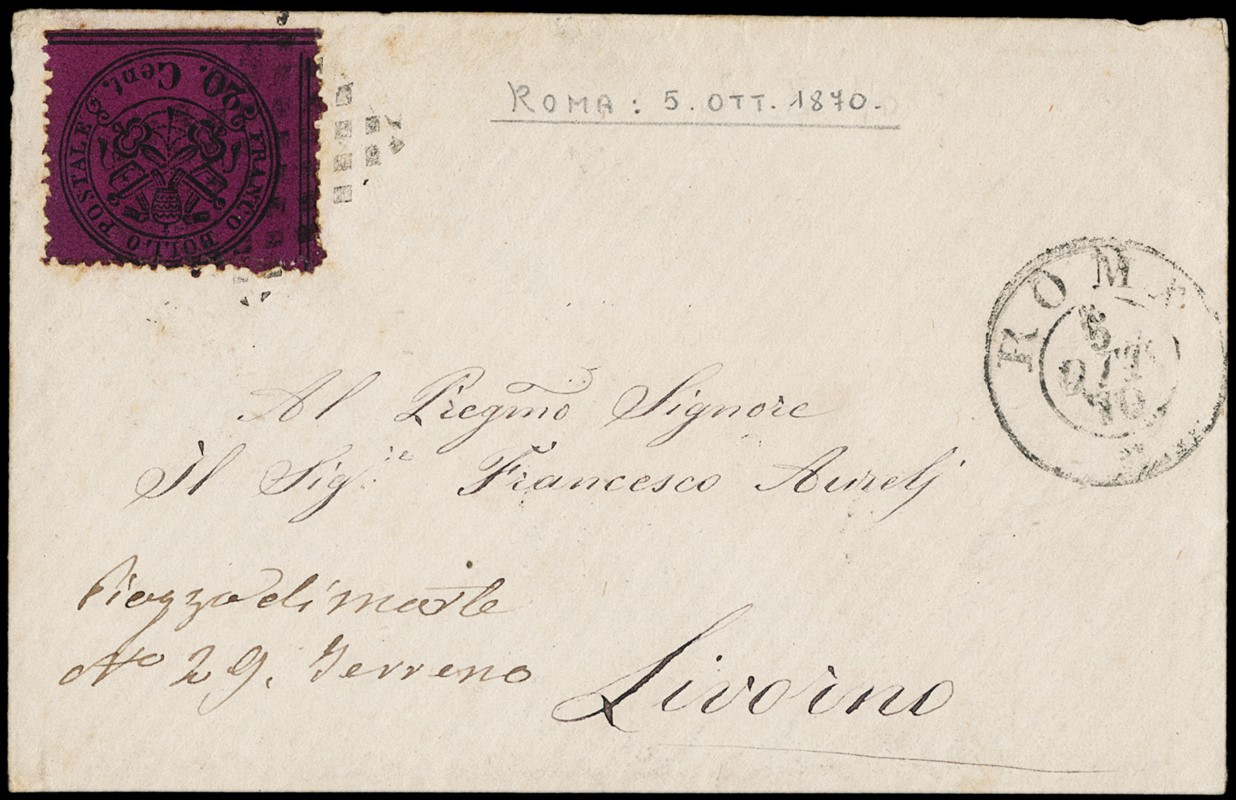 FRANCO BOLLO POSTALE
20. Cent.
ROMA : 5. OTT. 1870.
ROMA
5
OTT
70
Al Pregmo Signore
Il Sigre Francesco Aurelj
Piazza di marte
No 29. Terreno
Livorno